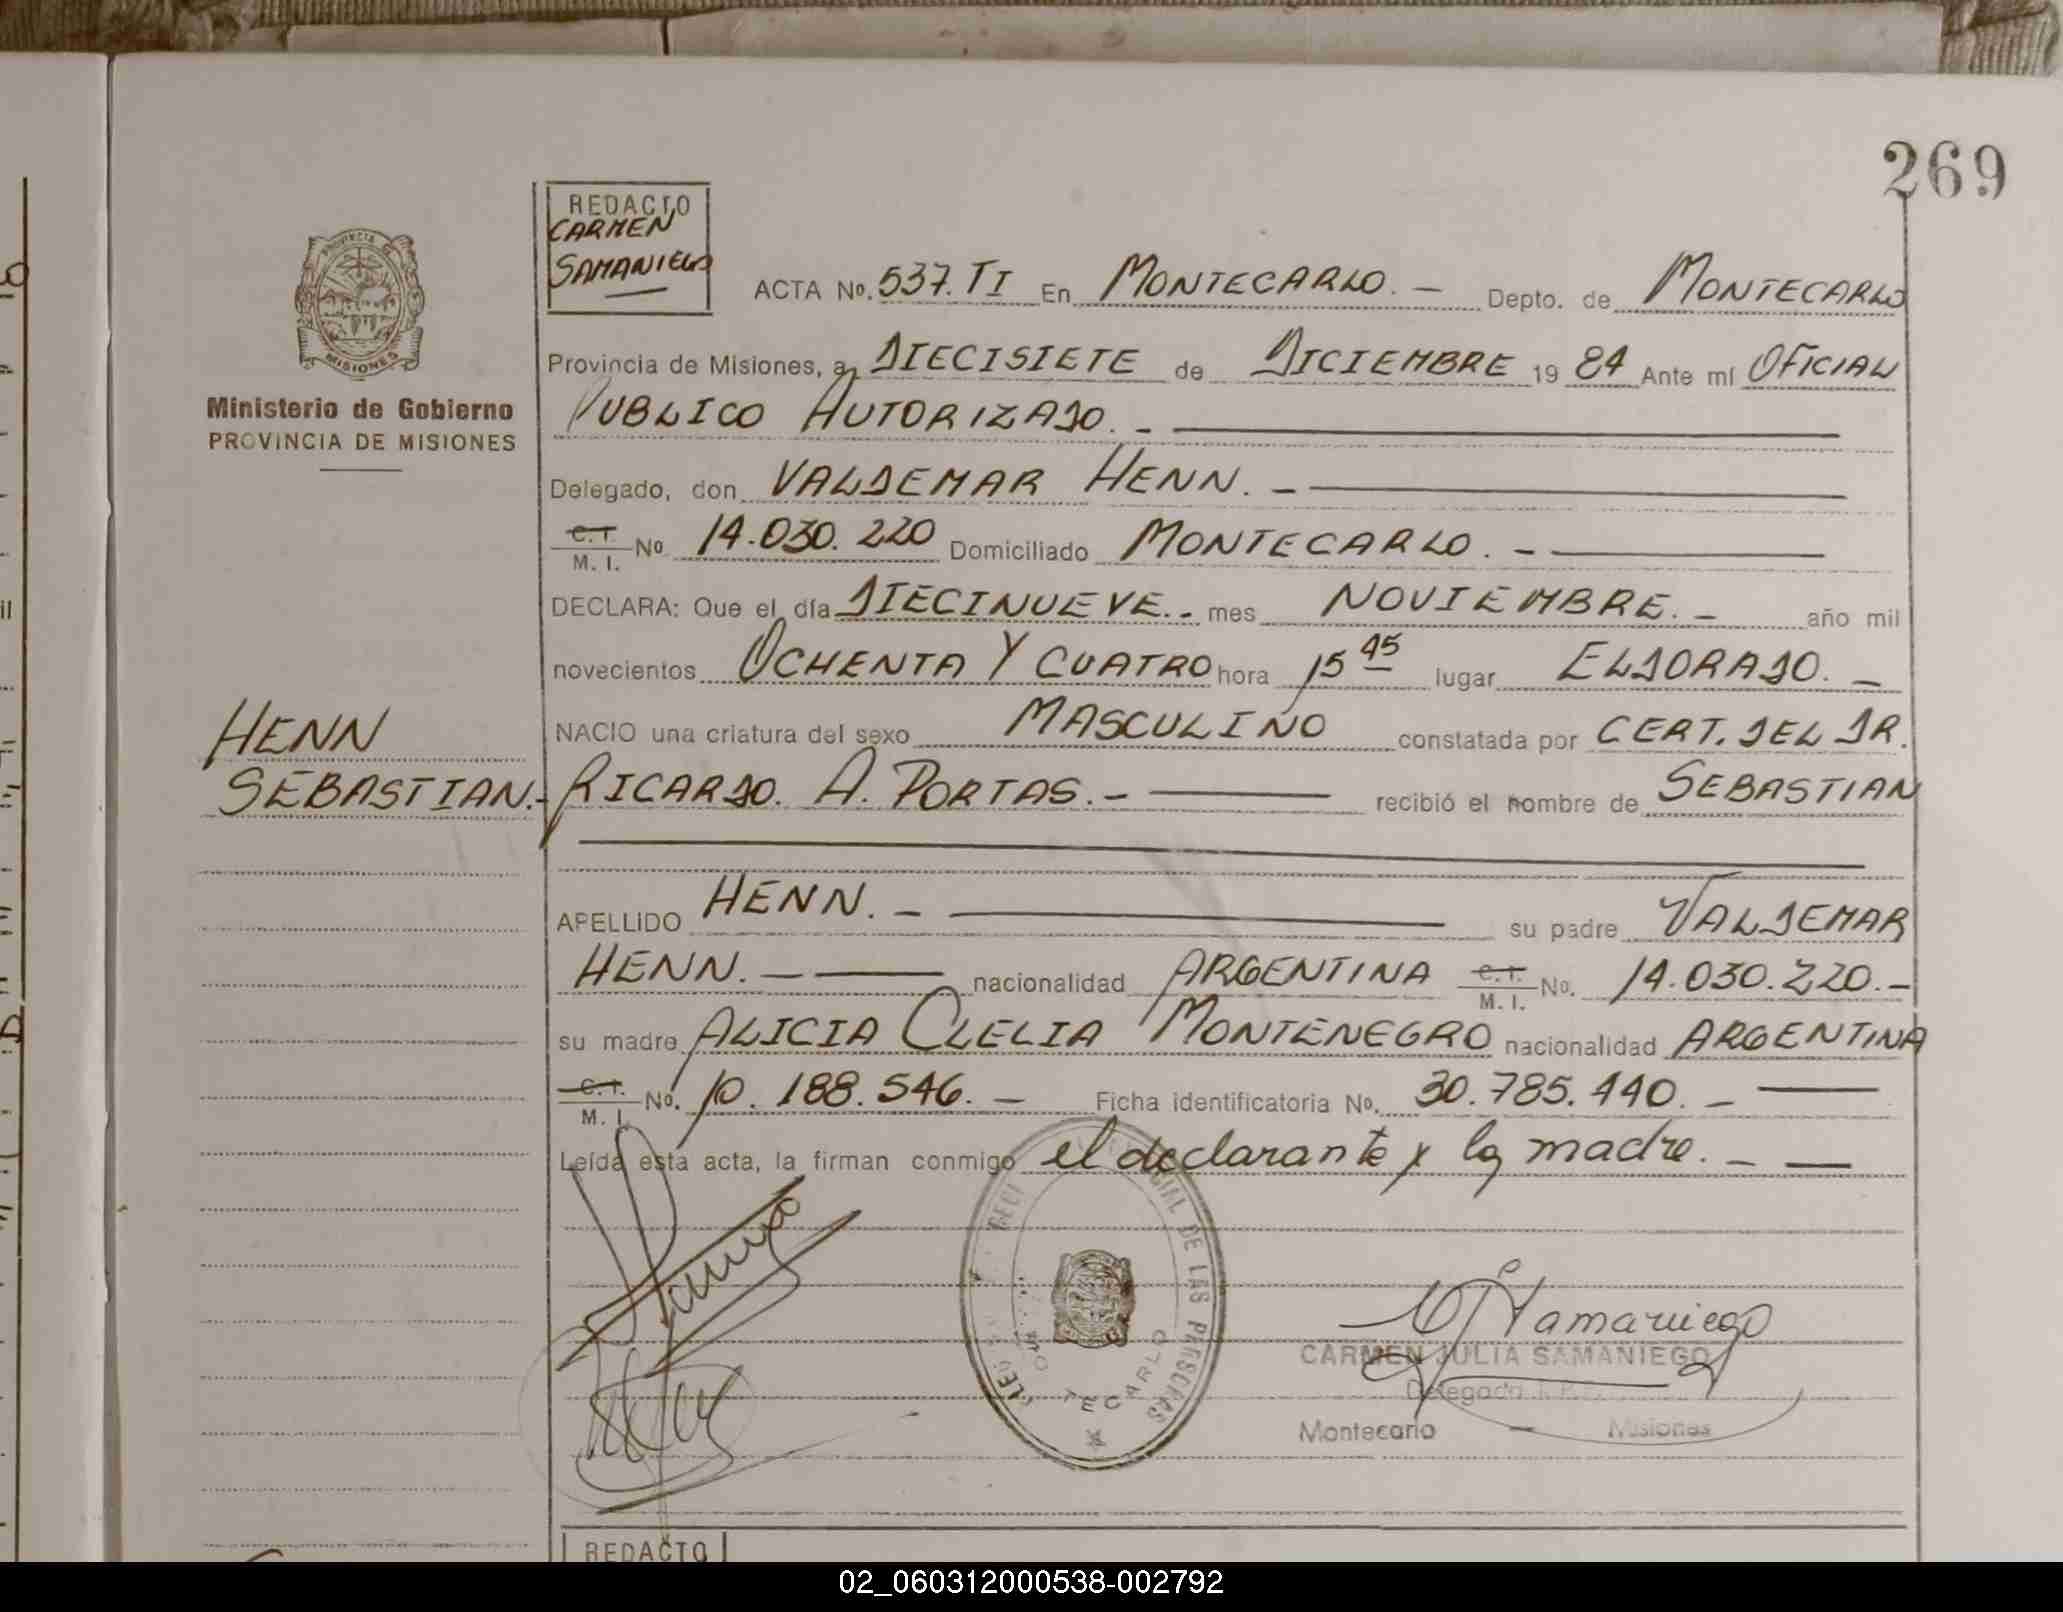 269
REDACTO
CARMEN
SAMANIEGO
PROVINCIA DE
MISIONES
Ministerio de Gobierno
PROVINCIA DE MISIONES
ACTA Nº. 537. TI En MONTECARLO. — Depto. de MONTECARLO
Provincia de Misiones, a DIECISIETE de DICIEMBRE 19 84 Ante mí OFICIAL
PUBLICO AUTORIZADO. —
Delegado, don VALDEMAR HENN. —
C.I.
M. I. Nº 14.030.220 Domiciliado MONTECARLO. —
DECLARA: Que el día DIECINUEVE. - mes NOVIEMBRE. — año mil
novecientos OCHENTA Y CUATRO hora 15 45 lugar ELDORADO. —
NACIO una criatura del sexo MASCULINO constatada por CERT. DEL DR.
HENN
SEBASTIAN. -
RICARDO. A. PORTAS. — recibió el nombre de SEBASTIAN
APELLIDO HENN. — su padre VALDEMAR
HENN. — nacionalidad ARGENTINA C.I.
M. I. Nº. 14.030.220. —
su madre ALICIA CLELIA MONTENEGRO nacionalidad ARGENTINA
C.I.
M. I. Nº. 10. 188.546. — Ficha identificatoria Nº. 30.785.440. —
Leída esta acta, la firman conmigo el declarante y la madre. —
DE LAS PERSONAS
TECARLO
Samaniego
CARMEN JULIA SAMANIEGO
Montecarlo — Misiones
REDACTO
02_060312000538-002792